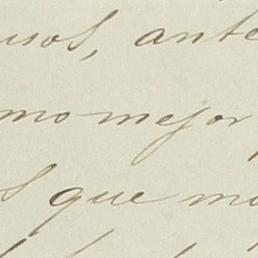 usos, ante
mo mejor
s que mo